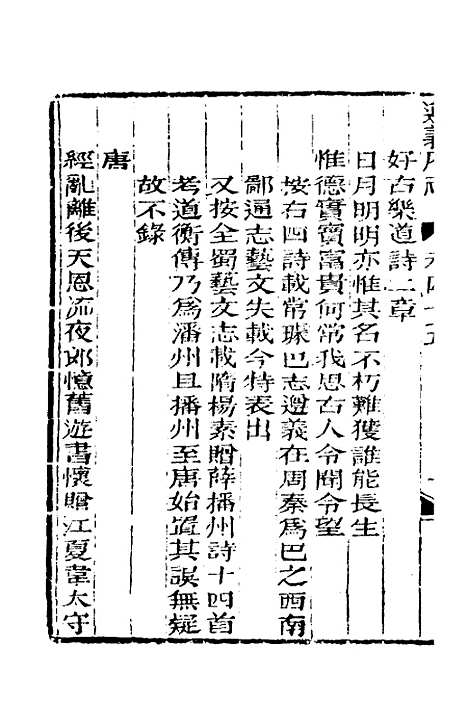 遵義府志 卷四十五 一
好古樂道詩二章
日月明明亦惟其名不朽難獲誰能長生
惟德實寶富貴何常我思古人令聞令望
按右四詩載常璩巴志遵義在周秦爲巴之西南
鄙通志藝文失載今特表出
又按全蜀藝文志載隋楊素贈薛播州詩十四首
考道衡傳乃爲潘州且播州至唐始置其誤無疑
故不錄
唐
經亂離後天恩流夜郎憶舊遊書懷贈江夏韋太守